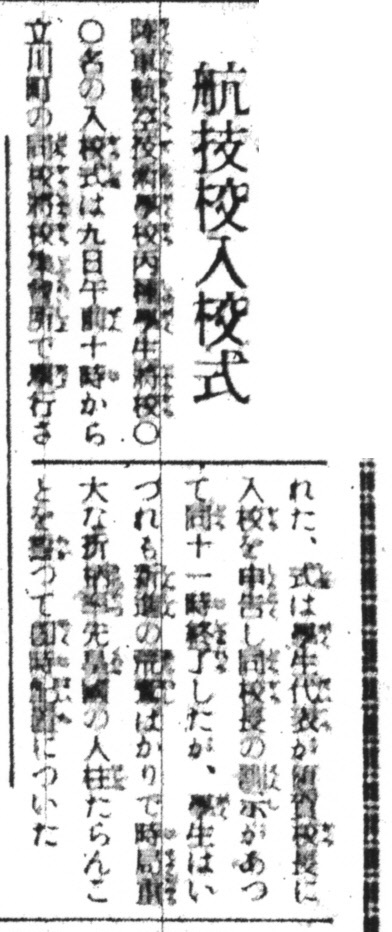 航技校入校式
陸軍航空技術學校丙種學生將校〇
〇名の入校式は九日午前十時から
立川町の同校將校集會所で擧行さ
れた、式は學生代表が須賀校長に
入校を申告し同校長の訓示があつ
て同十一時終了したが、學生はい
づれも新進の荒鷲ばかりで時局重
大な折柄 先皇國の人柱たらんこ
とを誓つて についた